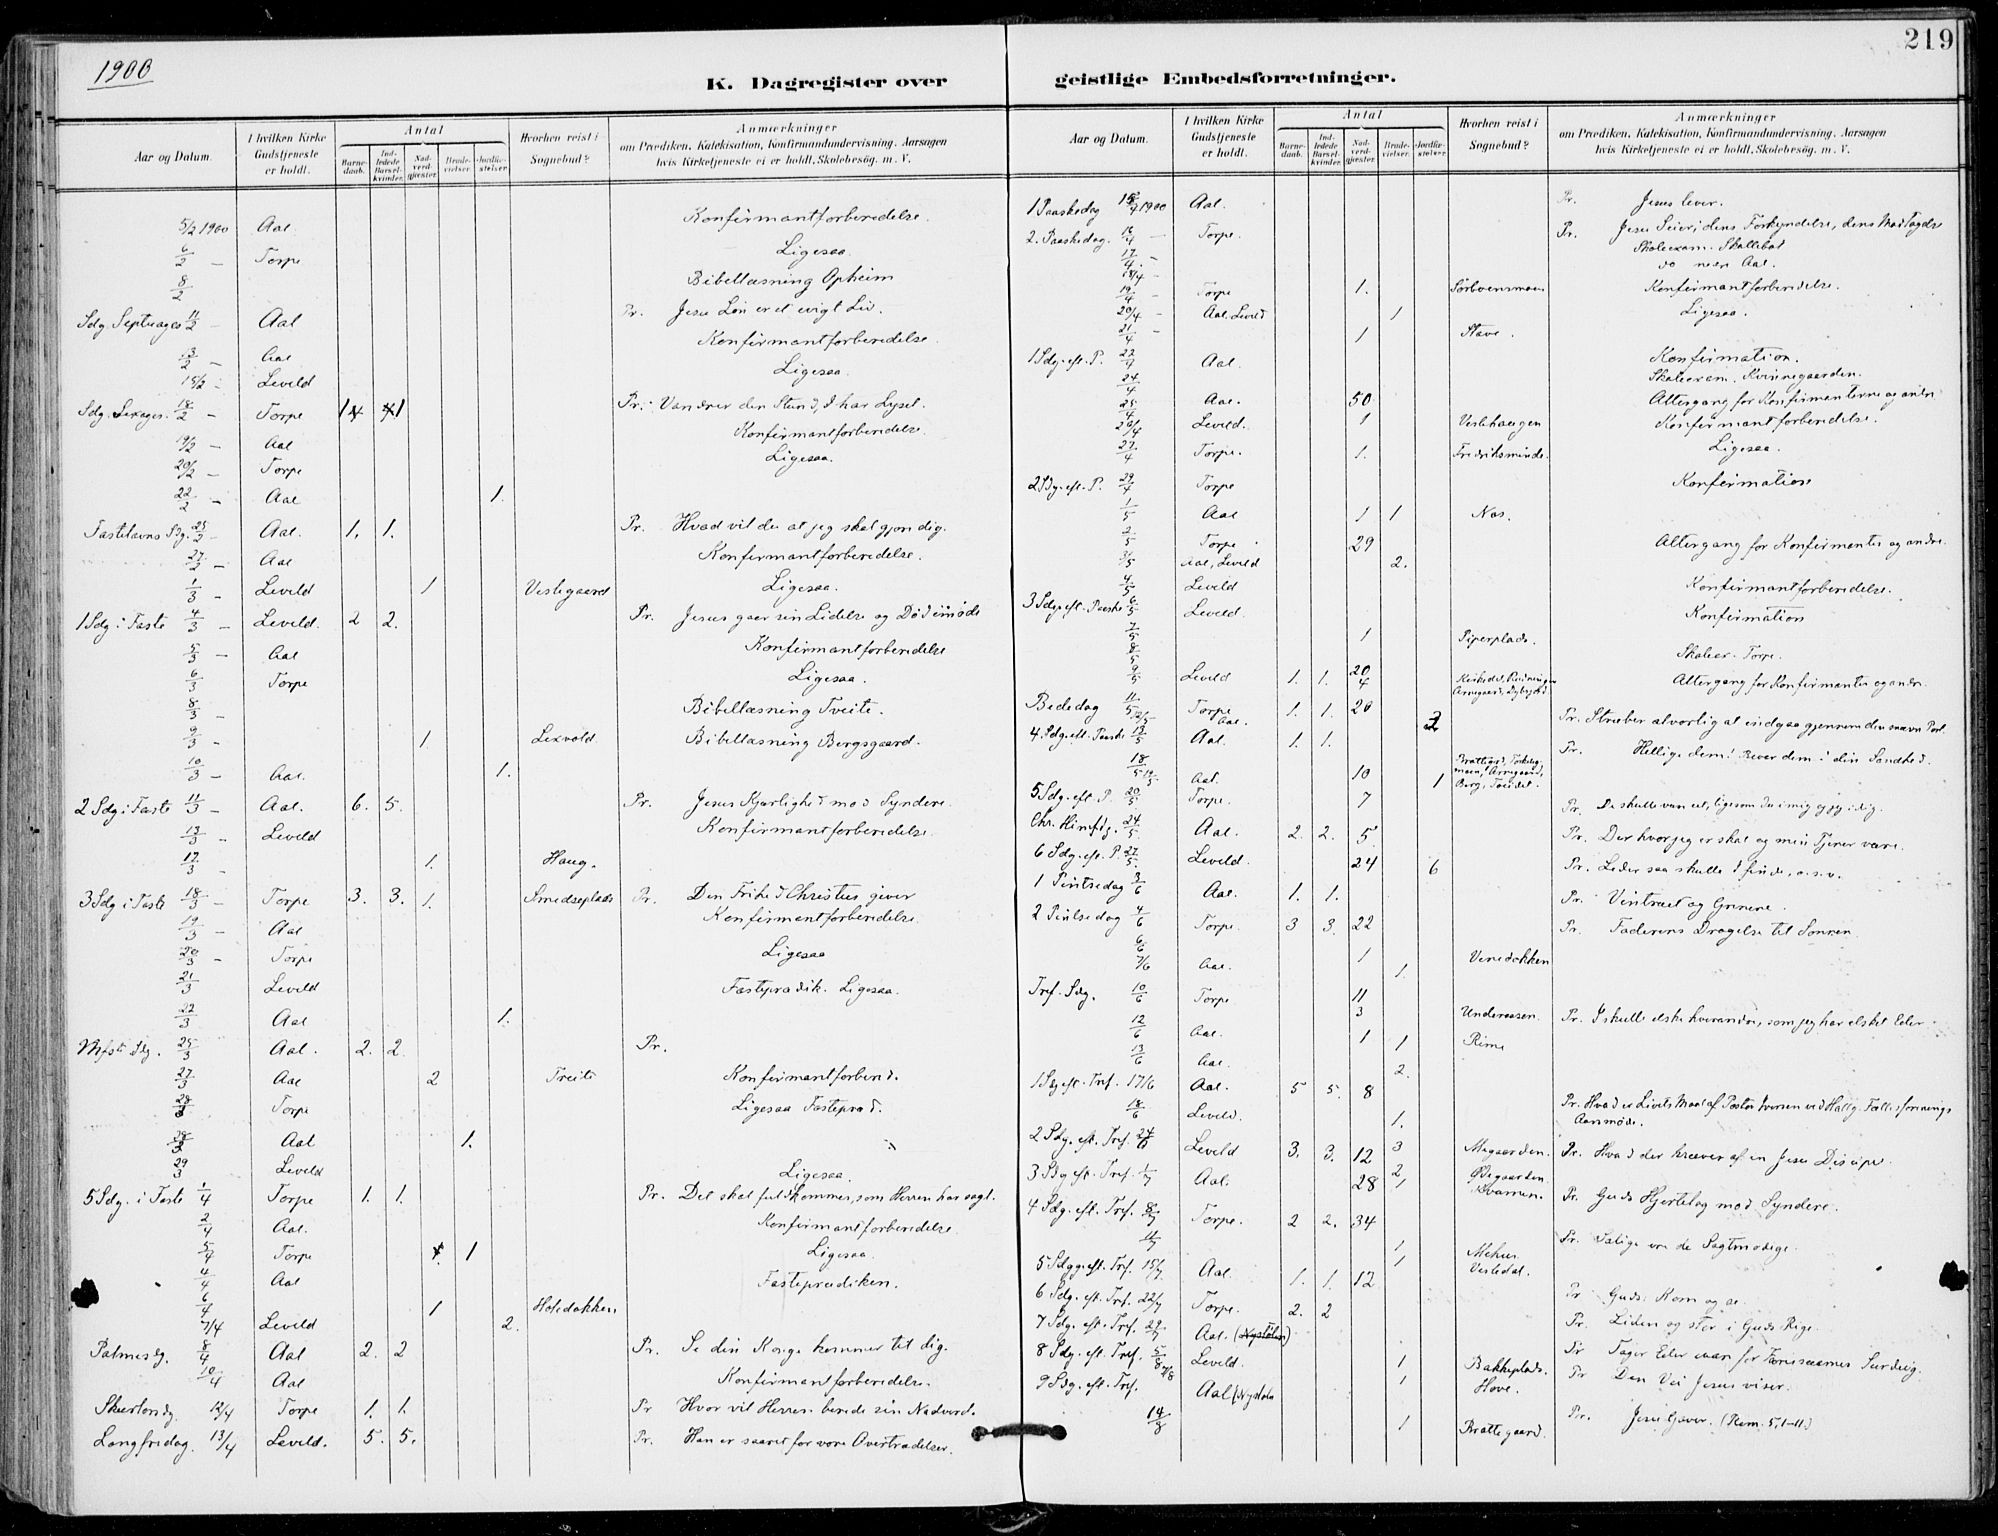 1900
219
K. Dagregister over geistlige Embedsforretninger.
Aar og Datum. | I hvilken Kirke Gudstjeneste er holdt. | Antal | Barnedaab. | Indledede Barselkvinder. | Nadverdgjæster. | Brudevielser. | Jordfæstelser. | Hvorhen reist i Sognebud? | Anmærkninger om Prædiken, Katekisation, Konfirmandundervisning. Aarsagen hvis Kirketjeneste ei er holdt, Skolebesøg. m. V.
5/2 1900 Aal Konfirmantforberedelse.
6/2 — Torpe Ligesaa.
8/2 Bibellæsning Opheim
Sdg. Septuages 11/2 — Aal Pr. Jesu Løn er et evigt Liv.
13/2 — Aal Konfirmantforberedelse.
15/2 — Leveld Ligesaa.
Sdg. Sexages. 18/2 — Torpe Pr. Vandrer den Stund, I har Lyset.
19/2 — Aal Konfirmantforberedelse.
20/2 — Torpe Ligesaa.
22/2 — Aal 1.
Fastelavns Sdg. 25/2 — Aal. 1. 1. Pr. Hvad vil du at jeg skal gjøre dig.
27/2 — Aal Konfirmantforberedelse.
1/3 — Leveld 1 Vestegaard Ligesaa.
1 Sdg. i Faste 4/3 — Leveld. 2 2. Pr. Jesus gaar sin Lidelse og Død imøde
5/3 — Aal Konfirmantforberedelse
6/3 Torpe Ligesaa.
8/3 — Bibellæsning Tveite.
9/3 — 1. Lexvold. Bibellæsning Bergsgaard.
10/3 — Aal. 1.
2 Sdg. i Faste 11/3 — Aal. 6. 5. Pr. Jesus Kjærlighed mod Syndere.
13/3 — Leveld Konfirmantforberedelse.
17/3 — 1. Haug.
3 Sdg i Faste 18/3 — Torpe 3. 3. 1. Smedseplads Pr. Den Frihed Christus giver
19/3 — Aal Konfirmantforberedelse.
20/3 — Torpe Ligesaa
21/3 Leveld Fasteprædik. Ligesaa.
22/3 Aal 1.
Mfst. Sdg. 25/3 Aal. 2. 2. Pr.
27/3 Aal 2 Tveito Konfirmantforbered.
28/3 Torpe Ligesaa Fastepræd.
28/3 Aal 1.
29/3 Leveld Ligesaa.
5 Sdg. i Faste 1/4 Torpe 1. 1. Pr. Det skal fuldkommes, som Herren har sagt.
2/4 Aal. Konfirmantforberedelse.
5/4 Torpe 1 Ligesaa.
4/4 Aal Fasteprædiken.
6/4 1 Holedokken
7/4 Leveld 2.
Palmesdg. 8/4 Aal 2. 2 Pr. Se din Konge kommer til dig.
10/4 Aal Konfirmantforberedelse.
Skjærtorsdg. 12/4 Torpe 1. 1. Pr Hvor vil Herren berede sin Nadverd.
Langfredag. 13/4 Leveld. 5. 5. Pr. Han er saaret for vore Overtrædelser.
Aar og Datum. | I hvilken Kirke Gudstjeneste er holdt. | Antal | Barnedaab. | Indledede Barselkvinder. | Nadverdgjæster. | Brudevielser. | Jordfæstelser. | Hvorhen reist i Sognebud? | Anmærkninger om Prædiken, Katekisation, Konfirmandundervisning. Aarsagen hvis Kirketjeneste ei er holdt, Skolebesøg. m. V.
1 Paaskedag 15/4 1900 Aal. Pr. Jesus lever.
2. Paaskedag. 16/4 — Torpe. Pr. Jesu Seier, dens Forkyndelse, dens Modtagelse
17/4 — Skoleexam.
18/4 — do nedre Aal.
19/4 — Torpe 1. Konfirmantforberedelse.
20/4 — Aal. Leveld 1 Ligesaa.
21/4 — 1 Stave.
1 Sdg. eft. P. 22/4 Aal. Konfirmation.
24/4 Skoleexam. Kvinnegaarden.
25/4 Aal. 50 Altergang for Konfirmanterne og andre
26/4 Leveld. 1 Veslehaugen Konfirmantforberedelse.
27/4 Torpe. 1. Fredriksminde. Ligesaa.
2 Sdg. eft. P. 29/4 Torpe Konfirmation
1/5 Aal 1 1 Nos.
2/5 Torpe 29 Altergang for Konfirmanter og andre.
3/5 Aal, Leveld 2.
4/5 Leveld Konfirmantforberedelse.
3 Sdg. eft. Paaske 6/5 Leveld. Konfirmation
7/5 1 Piperplads.
8/5 Skoleex. Torpe.
9/5 Leveld 1. 1. 20 4 Altergang for Konfirmanter og andre.
Bededag 11/5 Torpe 1. 1. 20 Pr. Stræber alvorlig at indgaa gjennem den snævre Port.
12/5 Aal. 2
4. Sdg. eft. Paaske 13/5 Aal. 1. 1. Pr. Hellige dem! Bevar dem i din Sandhed.
18/5 10
19/5 Aal. 1
5 Sdg. eft. P. 20/5 Torpe. 7 Pr. De skulle være et, ligesom du i mig og jeg i dig.
Chr. Himfdg. 24/5 Aal. 2. 2. 5. Pr. Der hvor jeg er skal og min Tjener være.
6 Sdg. eft. P. 27/5 Leveld. 24 6 Pr. Leder saa skulle I finde, o.s.v.
1 Pintsedag 3/6 Aal. 1. 1. Pr. Vintræet og Grenene.
2 Pintsedag 4/6 Torpe. 3 3. 22 Pr. Faderens Dragelse til Sønnen.
6/6 1 Vinedokken
7/6 Aal. 1.
Tref. Sdg. 10/6 Torpe 11 3 Underaasen. Pr. I skulle elske hverandre, som jeg har elsket Eder.
12/6 Aal. 1 1 Rime
13/6 Aal. 2.
1 Sdg eft. Tref. 17/6 Aal. 5 5. 8
18/6 Leveld. 1. Pr. Hvad er Livets Maal af Pastor Iversen ved Hallg. Fællesforenings Aarsmøde.
2 Sdg. eft. Tref. 24/6 Leveld 3. 3. 12 3 Megaarden. Pr. Hvad der kræver af en Jesu Discipel.
3 Sdg eft. Tref. 1/7 Aal. 28 2 1 Ødegaarden Kvammen. Pr. Guds Hjertelag mod Syndere.
4 Sdg. eft. Tref. 8/7 Torpe. 2 2. 34
11/7 1 Mehus Pr. Salige ere de Sagtmodige.
5 Sdg eft. Tref. 15/7 Aal. 1. 1. 12 1 Vestedal.
6 Sdg. eft. Tref. 22/7 Torpe. 2. 2 Pr Guds. Kom og se.
7 Sdg. eft. Tref. 29/7 Aal. (Nystølen) Pr. Liden og stor i Guds Rige.
8 Sdg. eft. Tref. 5/8 Leveld. 1 Bakkeplads. Pr Tager Eder vare for Farisæernes Surdeig.
9 Sdg. eft. Tref. Aal (Nystølen 1 Hove. Pr Den Vei Jesus viser.
14/8 1 Brattegaard. Pr. Jesu Gaver. (Rom. 5,1-11.)